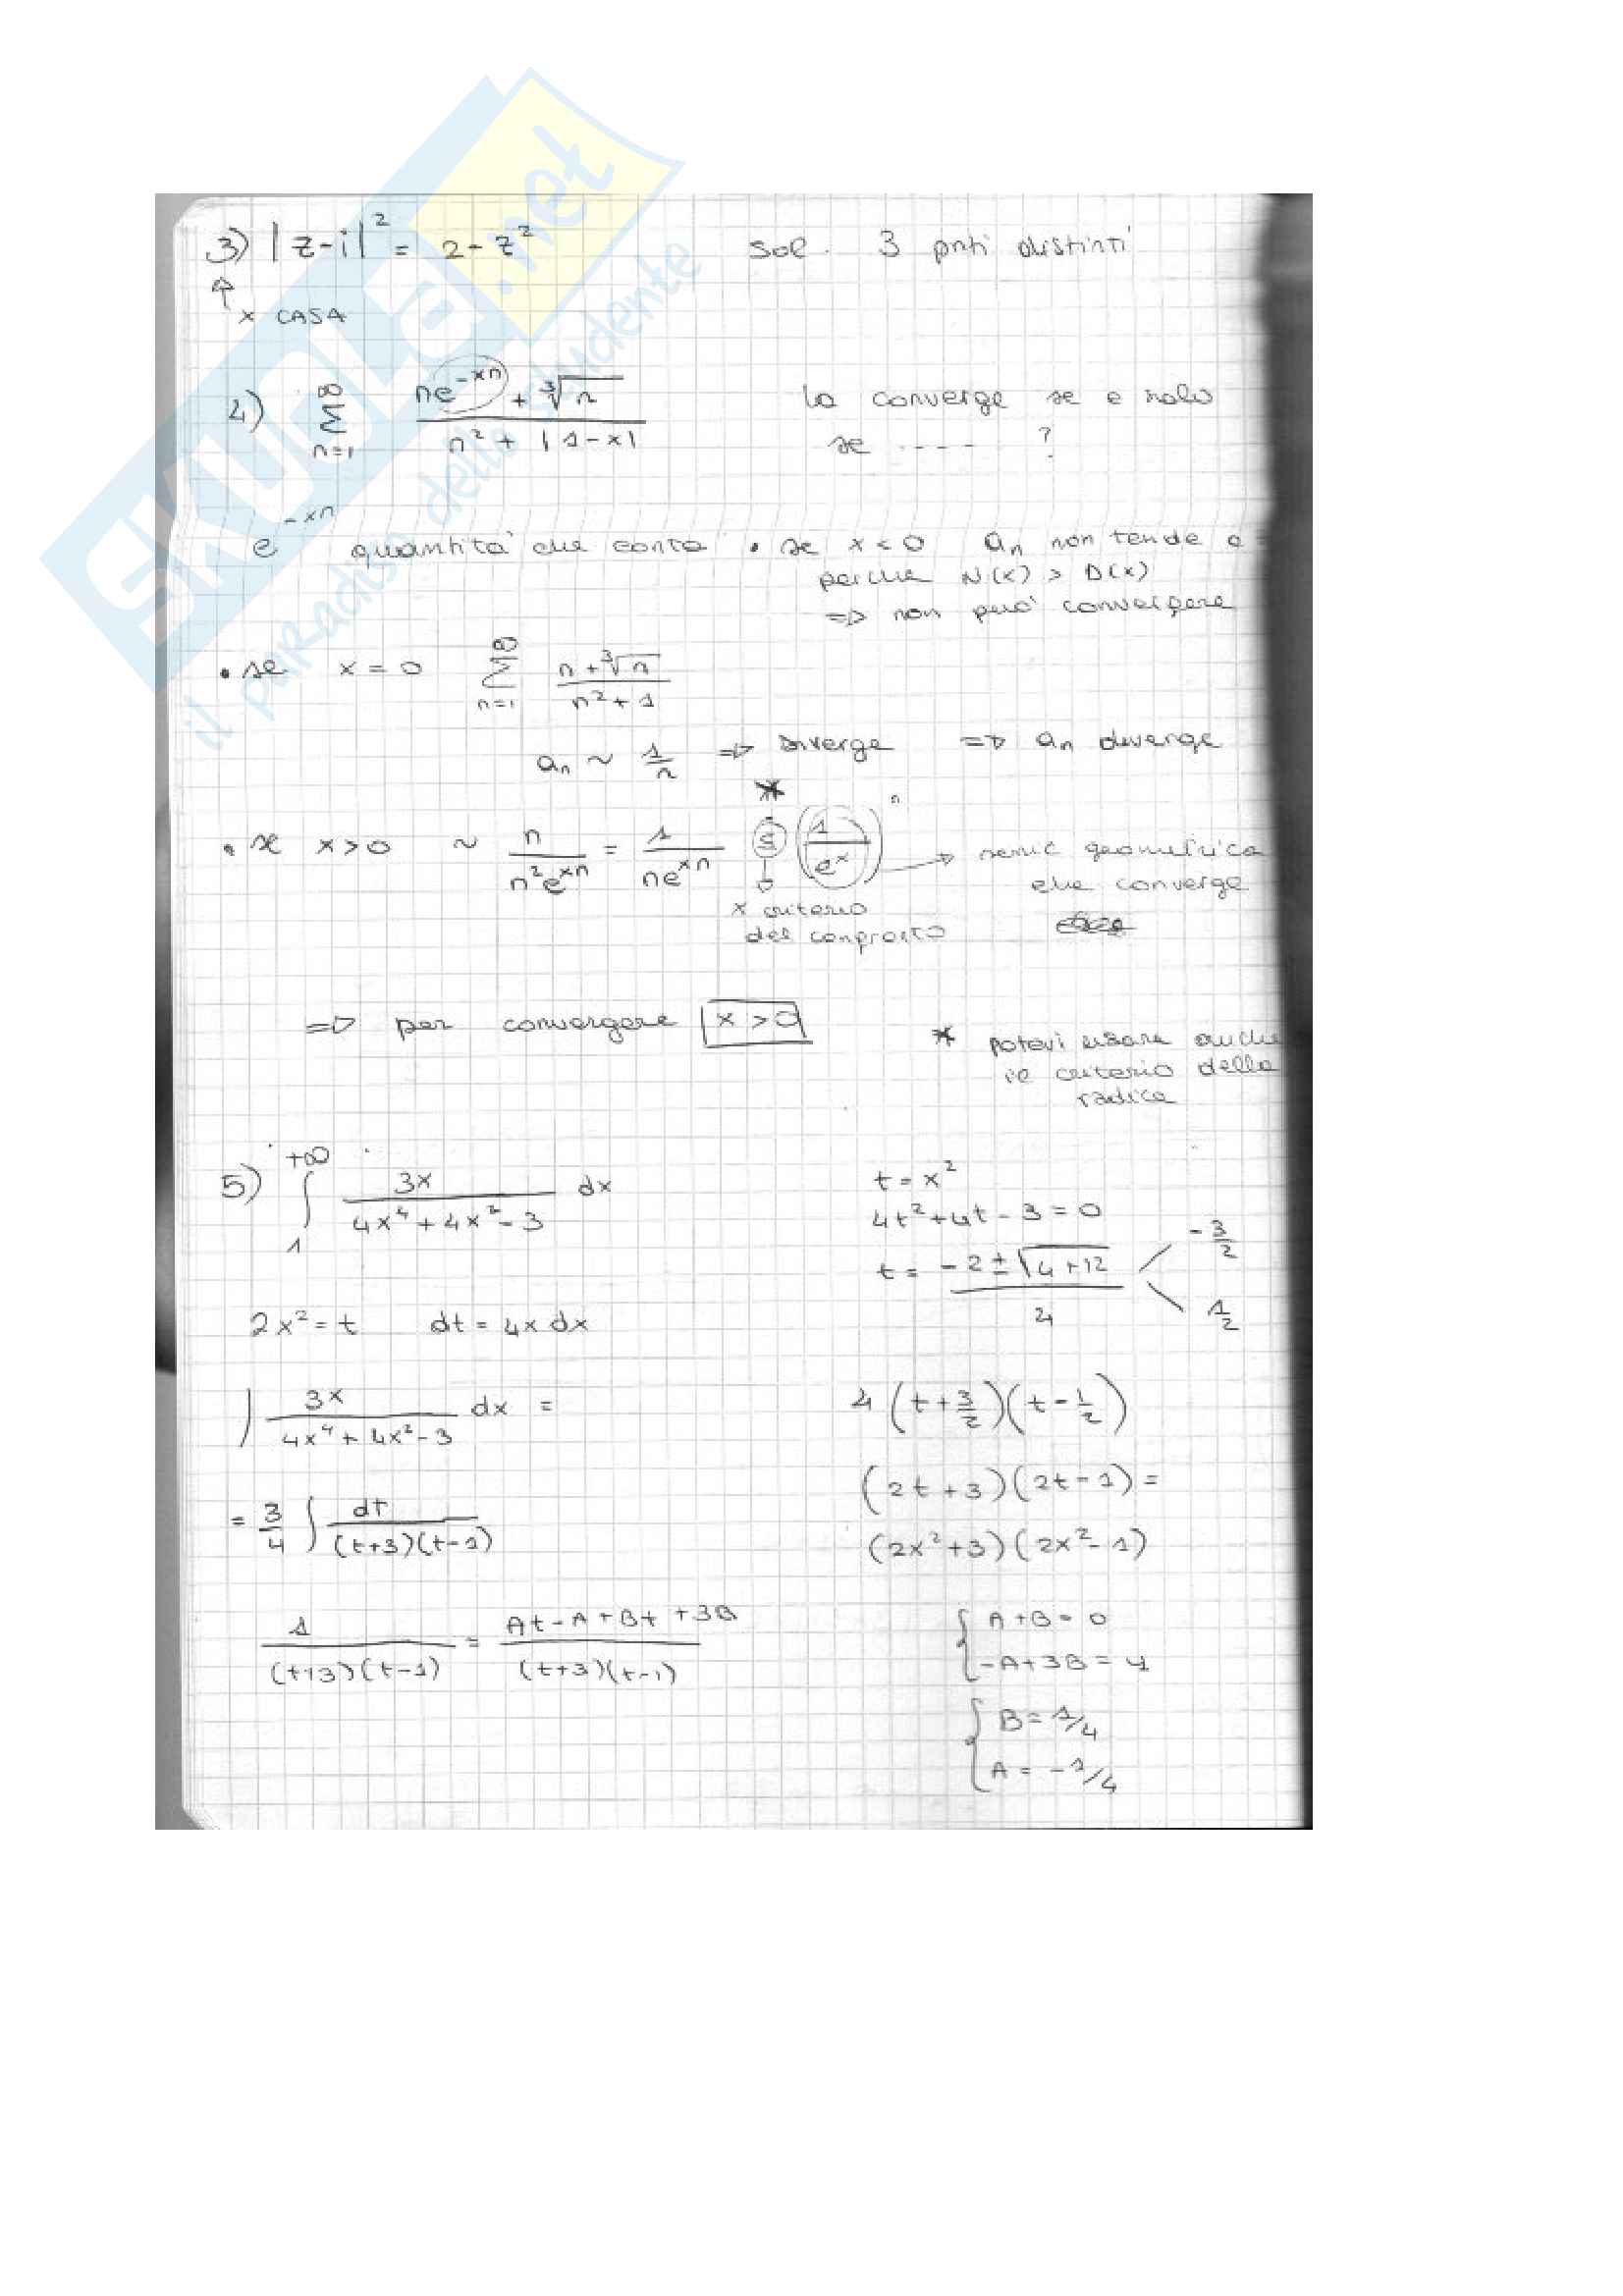 3) |z-i|² = 2-z² sol. 3 pnti distinti
↑ x CASA
4) ∞ Σ n=1 (ne^(-xn) + ∛n) / (n² + |1-x|) la converge se e solo
se ---- ?
e^(-xn) quantità che conta • se x<0 aₙ non tende a
perche N(x) > D(x)
⇒ non può convergere
• se x=0 ∞ Σ n=1 (n+∛n) / (n²+1)
aₙ ~ 1/n ⇒ diverge ⇒ aₙ diverge
*
• se x>0 ~ n/(n²e^(xn)) = 1/(ne^(xn)) ≤ (1/e^x)^n → serie geometrica
che converge
x criterio
del confronto
⇒ per convergere x>0
* potevi usare anche
il criterio della
radice
5) ∫₁^(+∞) 3x/(4x⁴+4x²-3) dx
t = x²
4t²+4t-3=0
t = (-2±√(4+12))/4 -3/2 1/2
2x²=t dt = 4x dx
∫ 3x/(4x⁴+4x²-3) dx =
4(t+3/2)(t-1/2)
= 3/4 ∫ dt/((t+3)(t-1))
(2t+3)(2t-1)=
(2x²+3)(2x²-1)
1/((t+3)(t-1)) = (At-A+Bt+3B)/((t+3)(t-1))
{ A+B=0
-A+3B=1
{ B=1/4
A=-1/4
SKUOLa.net
il paradiso dello studente